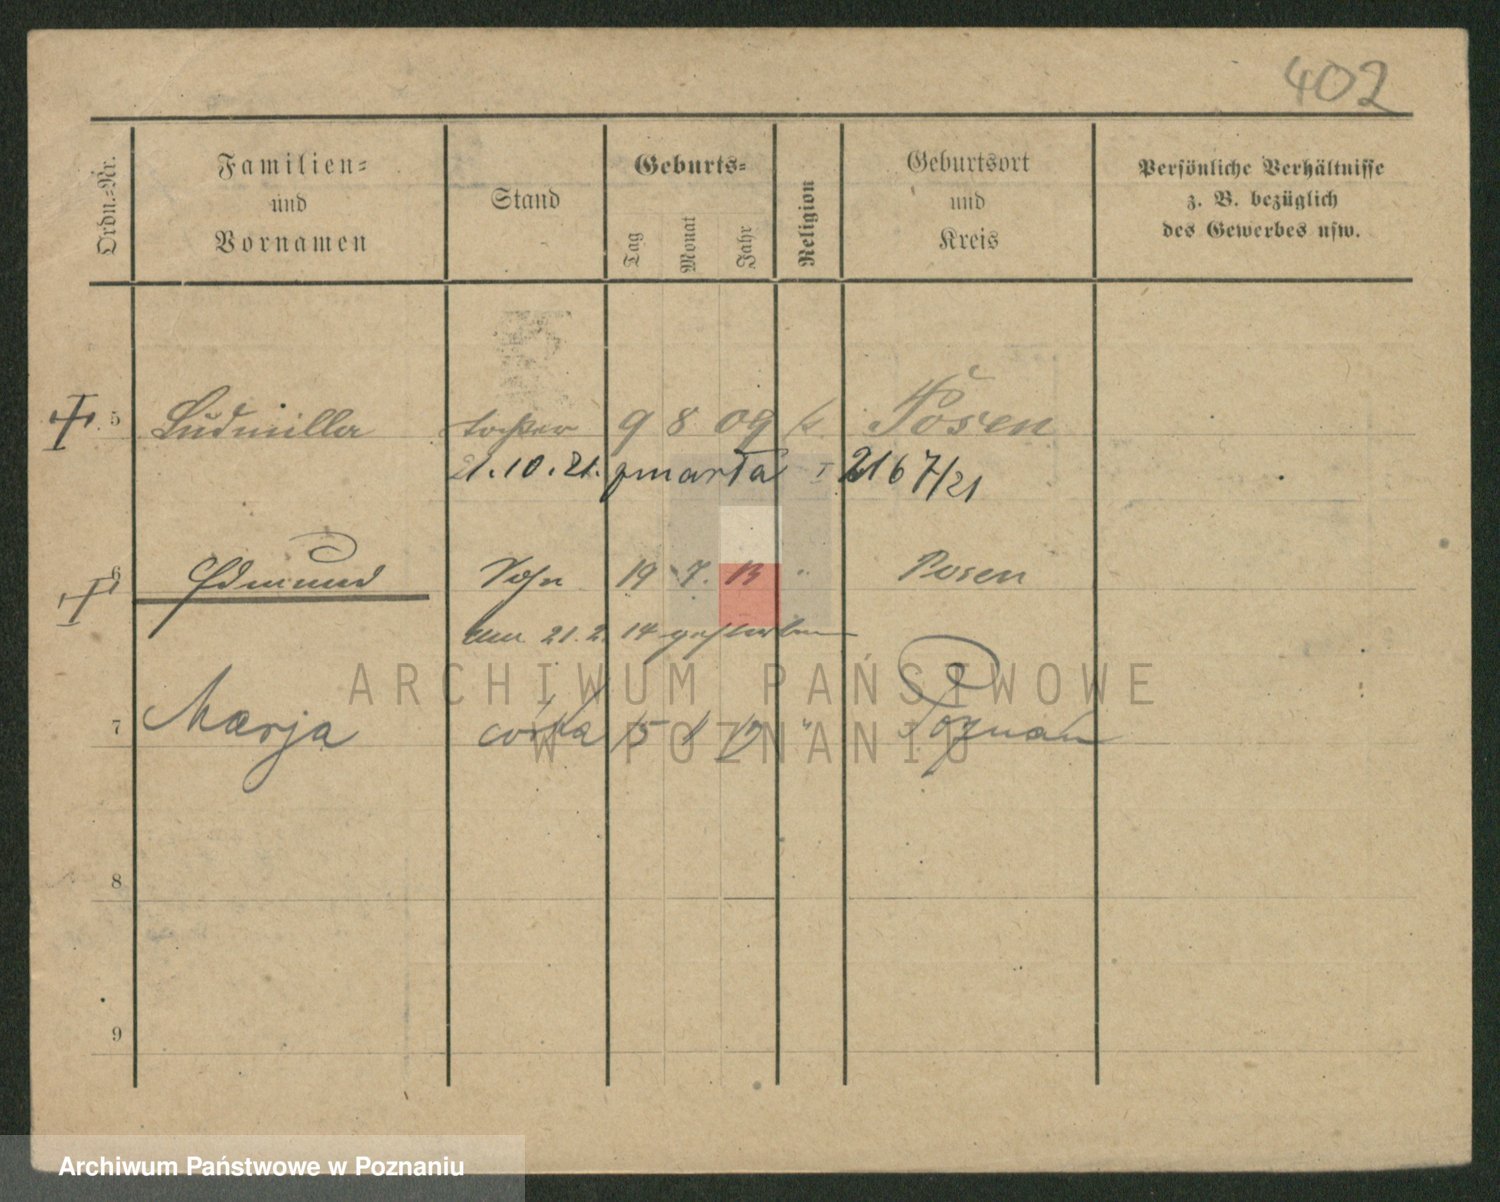 402
Ordn.-Nr.
Familien-
und
Vornamen
Stand
Geburts-
Tag
Monat
Jahr
Religion
Geburtsort
und
Kreis
Persönliche Verhältnisse
z. B. bezüglich
des Gewerbes usw.
5 Ludmilla Tochter 9 8 09 k Posen
21.10.21. zmarła I 2167/21
6 Edmund Sohn 19 7. 13 " Posen
am 21.2.14 gestorben
7 Marja córka 15 1 " Poznań
8
9
ARCHIWUM PAŃSTWOWE
W POZNANIU
Archiwum Państwowe w Poznaniu